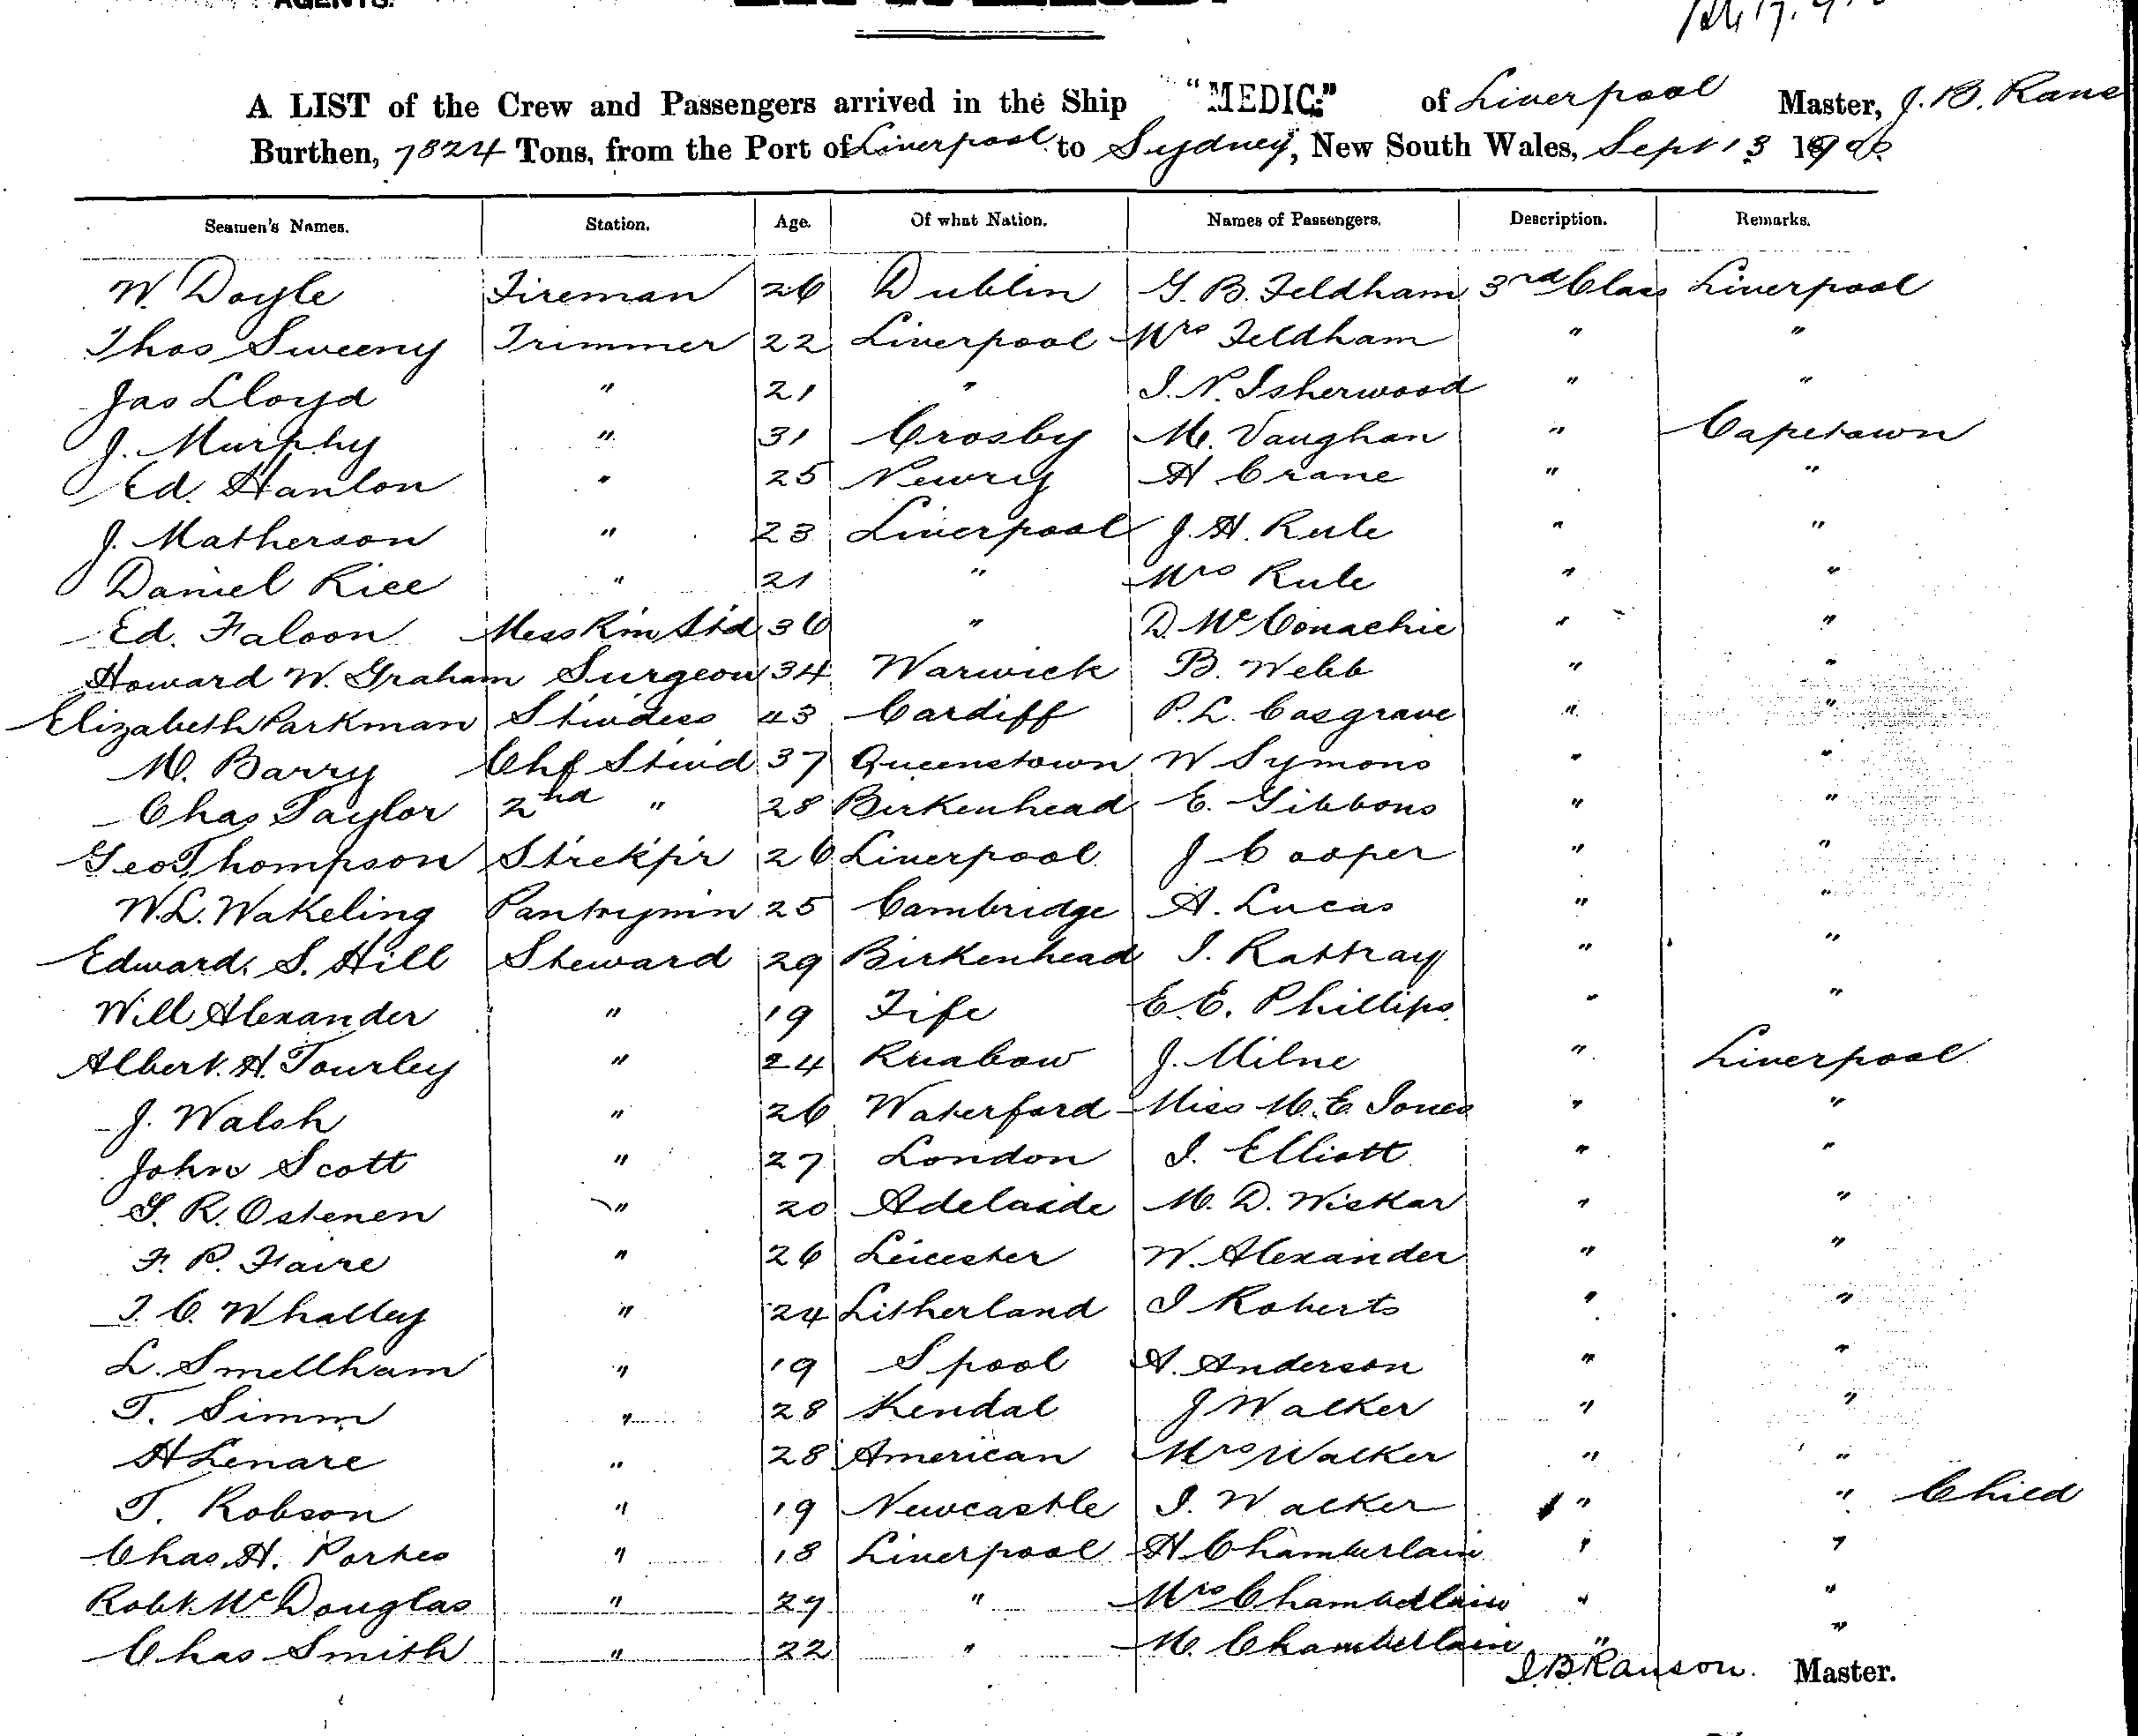 AGENTS.
A LIST of the Crew and Passengers arrived in the Ship "MEDIC." of Liverpool Master, J. B. Rans
Burthen, 7824 Tons, from the Port of Liverpool to Sydney, New South Wales, Sept 13 1900
Seamen's Names. Station. Age. Of what Nation. Names of Passengers. Description. Remarks.
W. Doyle Fireman 26 Dublin G. B. Feldham 3rd Class Liverpool
Thos Sweeny Trimmer 22 Liverpool Mrs Feldham " "
Jas Lloyd " 21 " I. N. Isherwood " "
J. Murphy " 31 Crosby M. Vaughan " Capetown
Ed. Hanlon " 25 Newry H Crane " "
J. Matherson " 23 Liverpool J. H. Rule " "
Daniel Rice " 21 " Mrs Rule " "
Ed. Faloon Mess Rm Std 36 " D. McConachie " "
Howard W. Graham Surgeon 34 Warwick B. Webb " "
Elizabeth Parkman Stwdess 43 Cardiff P. L. Casgrave " "
M. Barry Chf Stwd 37 Queenstown W Symons " "
Chas Taylor 2nd " 28 Birkenhead E. Gibbons " "
Geo Thompson Strekpr 26 Liverpool J Cooper " "
W. L. Wakeling Pantrymn 25 Cambridge A. Lucas " "
Edward. S. Hill Steward 29 Birkenhead I. Rattray " "
Will Alexander " 19 Fife E. E. Phillips " "
Albert. H. Tourley " 24 Ruabow J. Milne " Liverpool
J. Walsh " 26 Waterford Miss M. E Jones " "
John Scott " 27 London I. Elliott " "
G. R. Ostenen " 20 Adelaide M. D. Wiskar " "
F. P. Faire " 26 Leicester W. Alexander " "
T. C. Whalley " 24 Litherland I Roberts " "
L. Smellham " 19 Spool A. Anderson " "
T. Simm " 28 Kendal J Walker " "
H Lenare " 28 American Mrs Walker " "
T. Robson " 19 Newcastle I. Walker " " Child
Chas. H. Portes " 18 Liverpool H Chamberlain " "
Robt. McDouglas " 29 " Mrs Chamberlain " "
Chas Smith " 22 " M. Chamberlain " "
J. B. Ranson. Master.